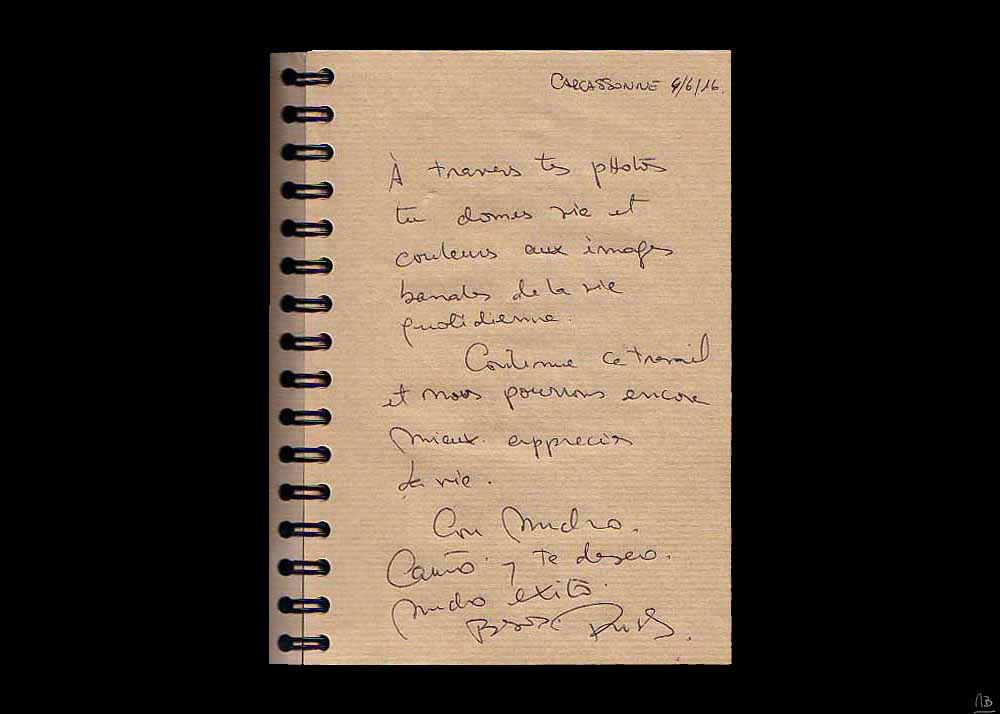 CARCASSONNE 4/6/16.
À travers tes pHotos
tu donnes vie et
couleurs aux images
banales de la vie
quotidienne.
Continue ce travail
et nous pourrons encore
mieux apprecier
la vie.
Con mucho.
Cariño y te deseo.
mucho exito.